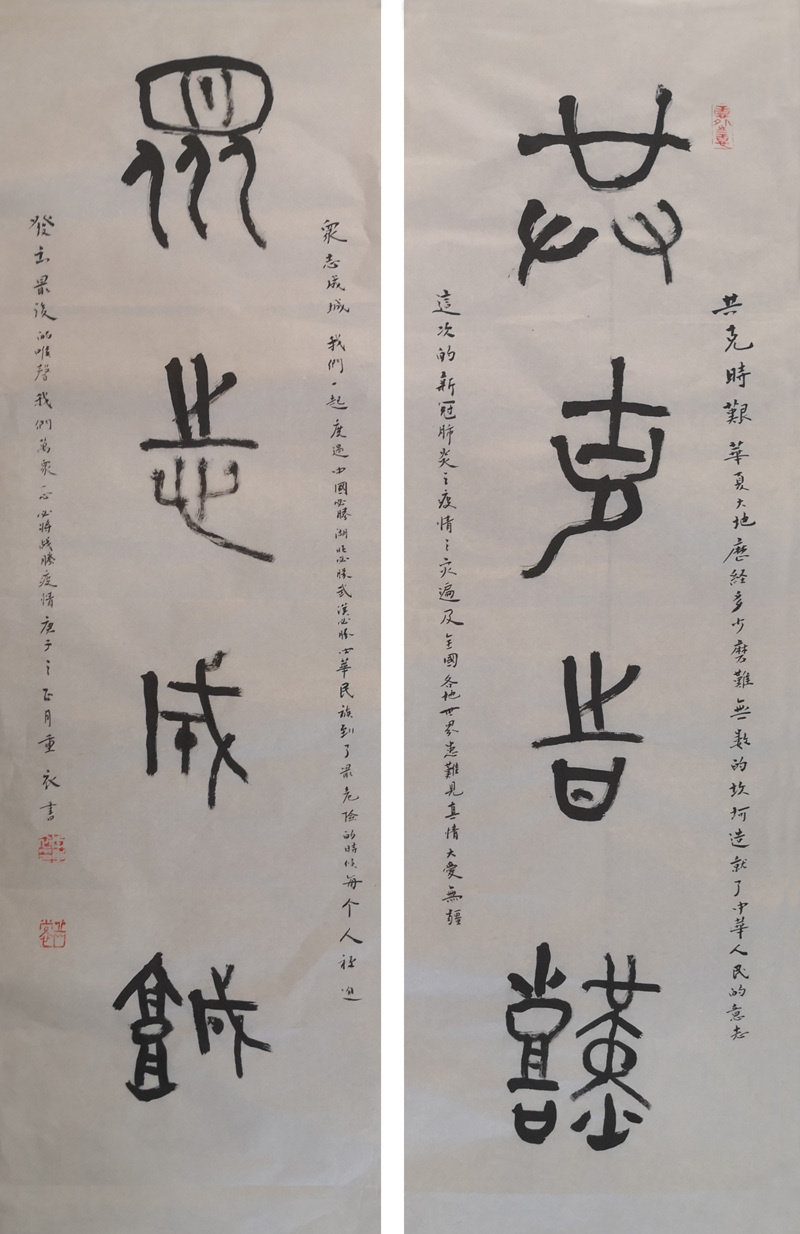 共克時艱
共克時艱華夏大地歷经多少磨難無数的坎坷造就了中華人民的意志
這次的新冠肺炎之疫情之灾遍及全國各地世界患難見真情大愛無疆
眾志成城
眾志成城我們一起度过中國必勝湖北必勝武漢必勝中華民族到了最危险的時候每个人被迫
發出最後的吼聲我們萬眾一心必將战勝疫情庚子之正月重衣書